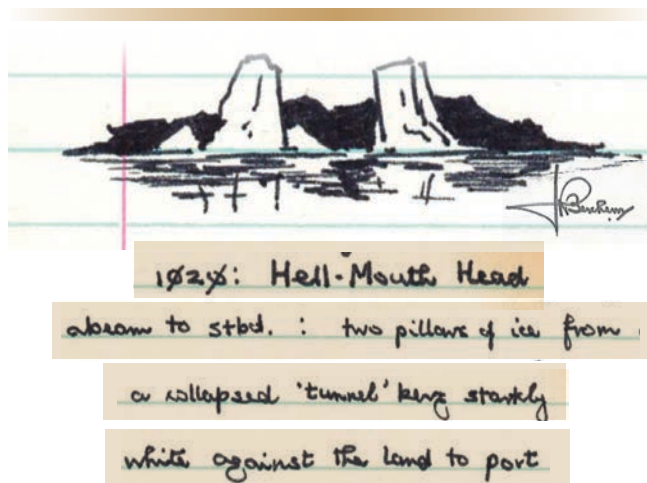 1Ø2Ø: Hell-Mouth Head
abeam to stbd. : two pillars of ice from
a collapsed 'tunnel' berg starkly
white against the land to port